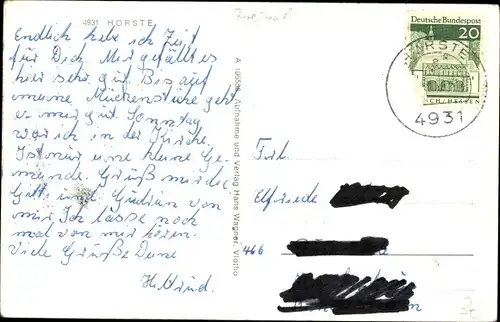 4931 HORSTE
Endlich habe ich Zeit
für Dich. Mir gefällt es
hier sehr gut. Bis auf
meine Mückenstiche geht
es mir gut. Sonntag
war ich in der Kirche.
Ist nur eine kleine Ge-
meinde. Grüß mir die
und von
mir. Ich lasse noch
mal von mir hören.
Viele Grüße Deine
Aufnahme und Verlag Hans Wagner, Vlotho
Deutsche Bundespost
20
HORSTE
4931
Frl.
Elfriede
466